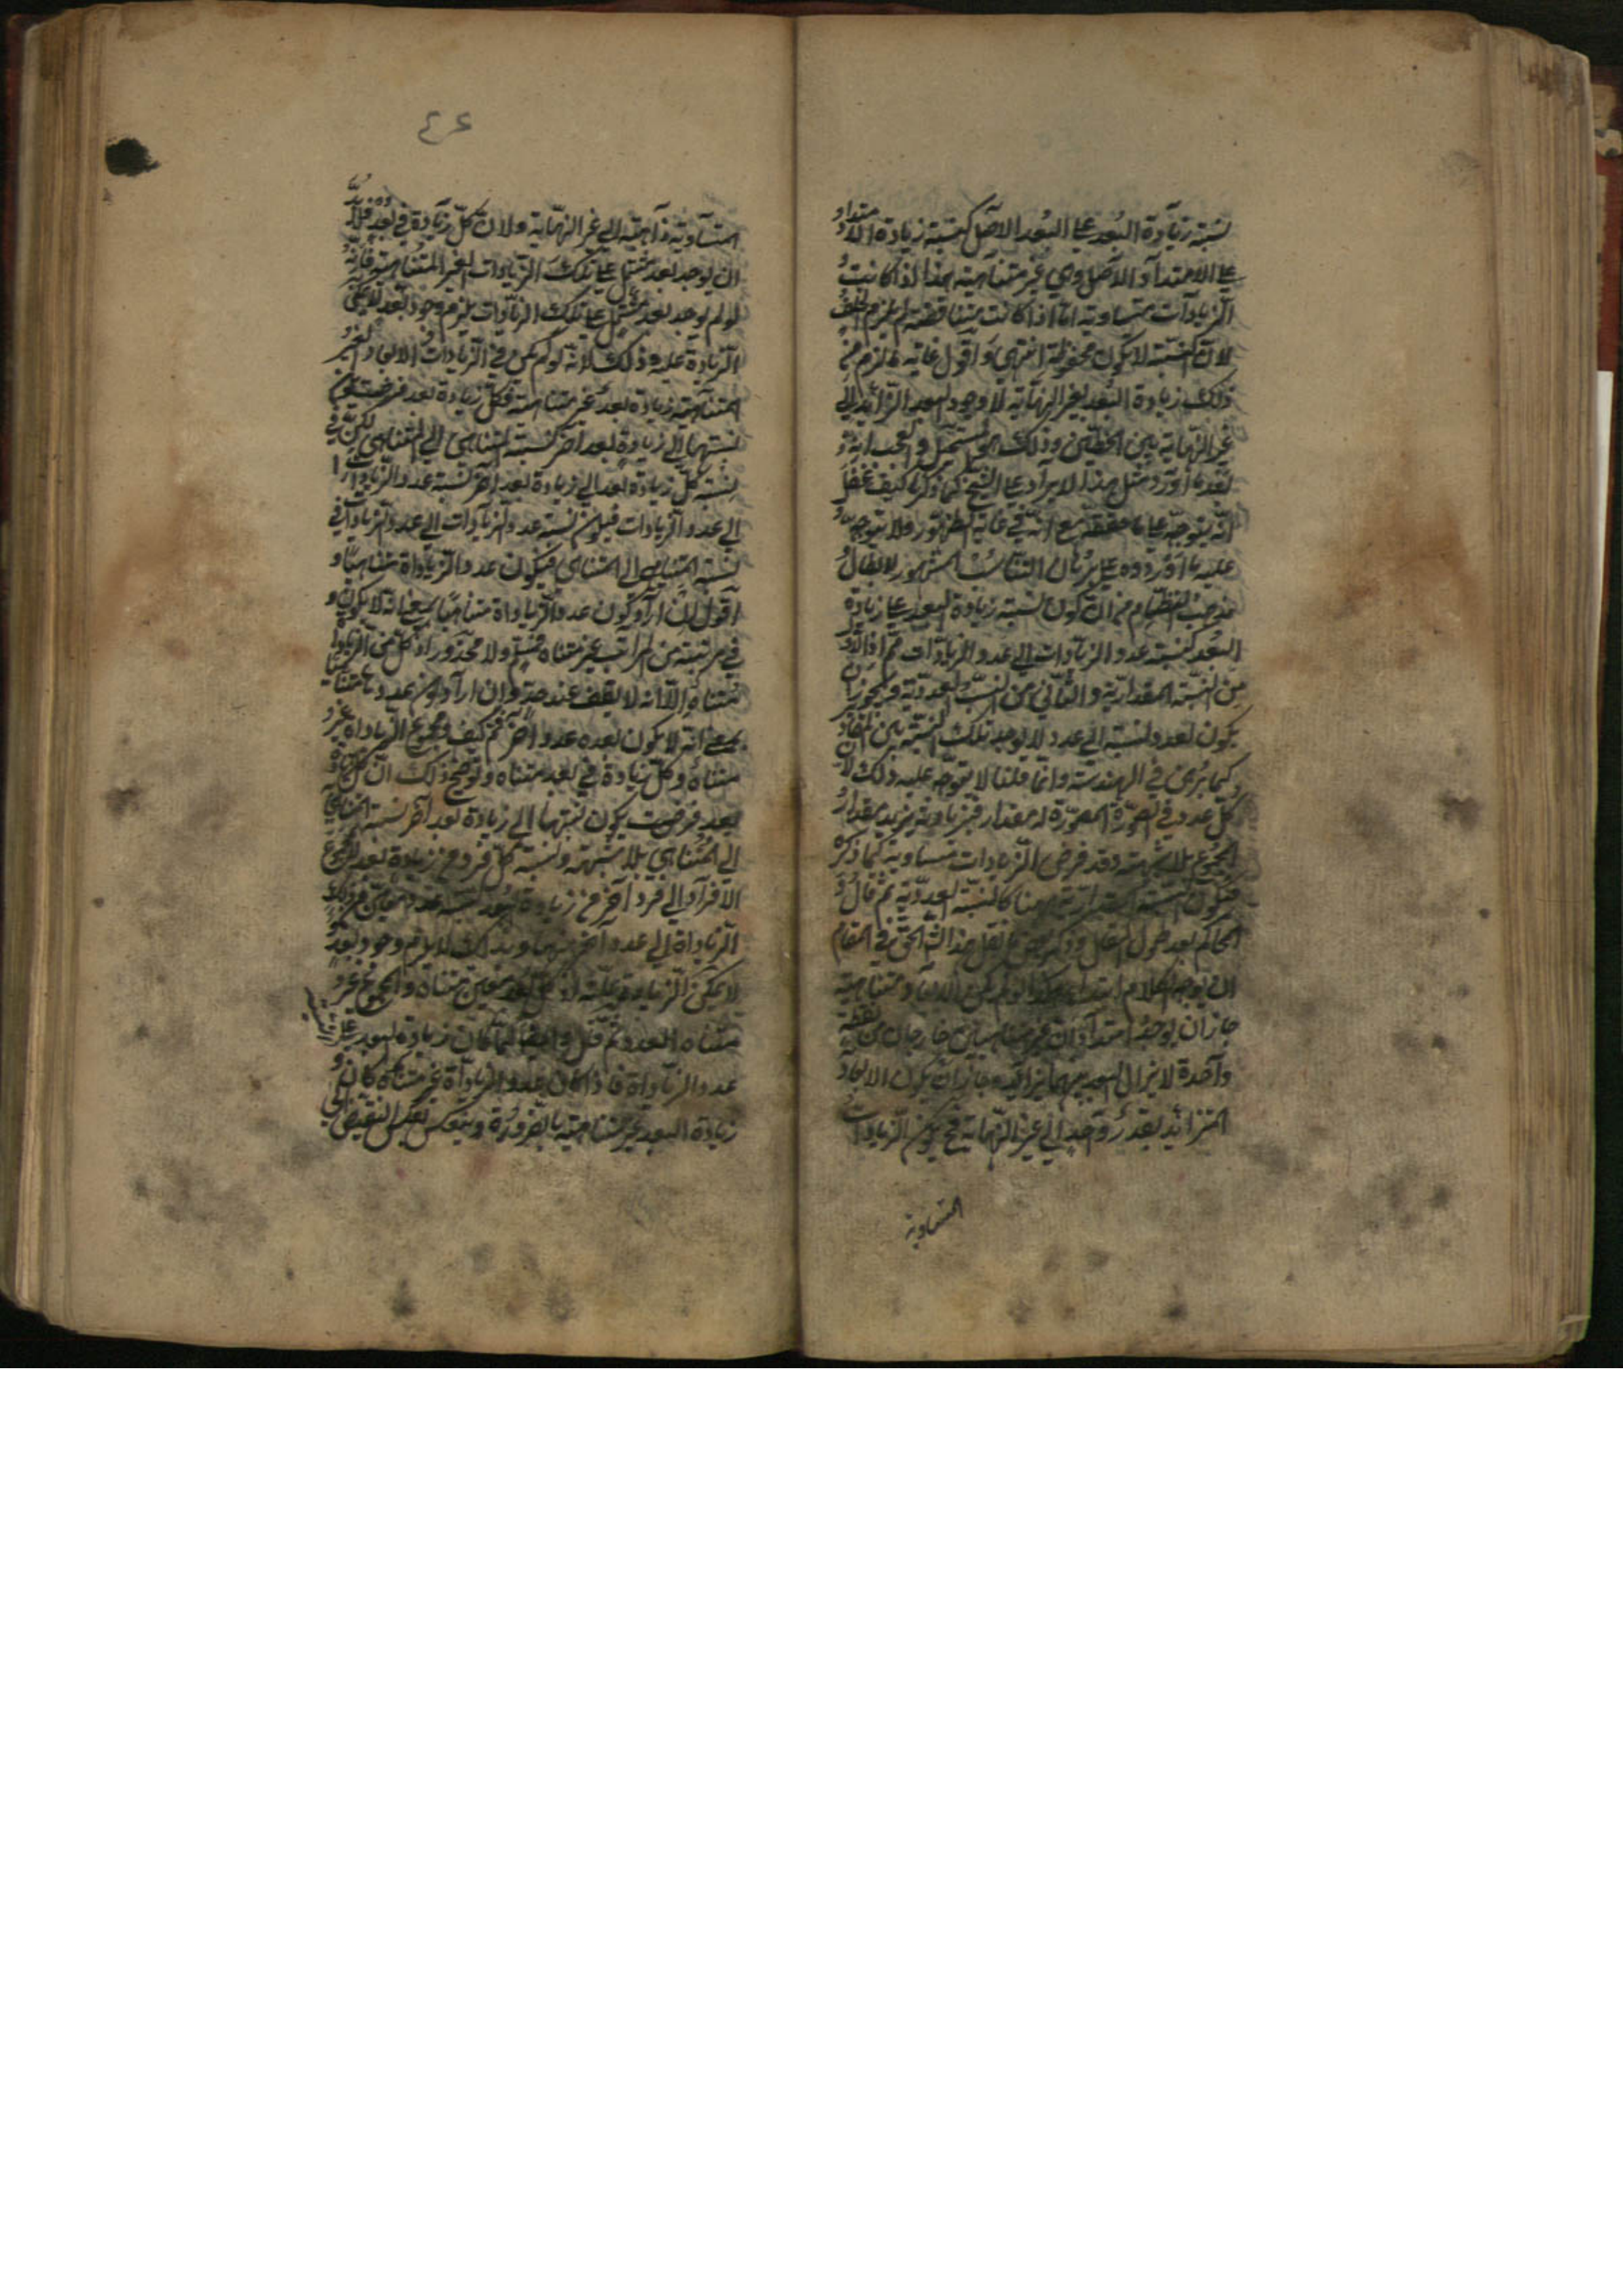 نسبة زيادة البعد على البعد الاصل كنسبة زيادة الامتداد
على الامتداد الاصل وهي غير متناهية هذا اذا كانت
الزيادات متساوية اما اذا كانت متناقصة لم يلزم الخلف
لان النسبة لا يكون محفوظة انتهى و اقول غاية ما لزم من
ذلك زيادة البعد لغير النهاية لا وجود البعد الزائد الى
غير النهاية بين الخطين وذلك هو المستحيل والعجب انه
بعد ما اورد مثل هذا الايراد على الشيخ كما ذكرنا كيف غفل
انه يتوجه على ما حققه مع انه في غاية الظهور ولا يتوجه
عليه ما اوردوه على برهان التناسب المشهور لابطال
مذهب النظام من ان كون نسبة زيادة البعد على زيادة
البعد كنسبة عدد الزيادات الى عدد الزيادات ثم اذ الاول
من النسبة المقدارية والثاني من النسب العددية ويجوز ان
يكون لعدد نسبة الى عدد لا يوجد تلك النسبة بين المقادير
كما برهن في الهندسة وانما قلنا لا يتوجه عليه ذلك لان
كل عدد في الصورة المصورة له مقدار فبزيادته يزيد مقدار
المجموع بلا شبهة وقد فرض الزيادات متساوية كما ذكره
فيكون النسبة المقدارية هنا كالنسبة العددية ثم قال
المحاكم بعد نقل هذا الحق في المقام
ان يوجه الكلام ابتداء هكذا لو لم يكن الابعاد متناهية
جاز ان يوجد امتدادان غير متناهيين خارجان من نقطة
واحدة لا يزال البعد بينهما يتزايد و جاز ان يكون الابعاد
المتزائد بقدر واحد الى غير النهاية فح يكون الزيادات
المتساوية
٤٦
المتساوية ذاهبة الى غير النهاية ولان كل زيادة في بعد فلابد
ان يوجد بعد مشتمل على تلك الزيادات الغير المتناهية فانه
لو لم يوجد بعد مشتمل على تلك الزيادات يلزم وجود بعد لا يمكن
الزيادة عليه وذلك لانه لو لم يكن في الزيادات والابعاد الغير
المتناهية زيادة بعد غير متناهية فكل زيادة بعد فرضت يكون
نسبتها الى زيادة بعد آخر كنسبة المتناهي الى المتناهي لكن
نسبة كل زيادة بعد الى زيادة بعد آخر كنسبة عدد الزيادات
الى عدد الزيادات فيلزم نسبة عدد الزيادات الى عدد الزيادات
نسبة المتناهي الى المتناهي فيكون عدد الزياداة متناهيا و
اقول ان اراد بكون عدد الزياداة متناهيا بمعنى انه لا يكون
في مرتبة من المراتب غير متناه فمسلم ولا محذور اذ كل من الزيادات
متناه الا انه لا يقف عند حد وان اراد كون عددها متناهيا
بمعنى انه لا يكون بعده عدد آخر فمم كيف ومجموع الزياداة غير
متناه و كل زيادة في بعد متناه و توضيح ذلك ان كل زيادة
بعد فرضت يكون نسبتها الى زيادة بعد آخر نسبة المتناهي
الى المتناهي بلا شبهة ونسبة كل فرد من زيادة بعد لا مجموع
الافراد الى فرد آخر من زيادة بعد نسبة عدد معين من تلك
الزياداة الى عدد آخر منها وبذلك لا يلزم وجود بعد
لا يمكن الزيادة عليه اذ كل بعد معين متناه والمجموع غير
متناه العدد ثم قيل وايضا لما كان زيادة البعد على
عدد الزياداة فاذا كان عدد الزياداة غير متناه كان
زيادة البعد غير متناهية بالضرورة وينعكس بعكس النقيض الى